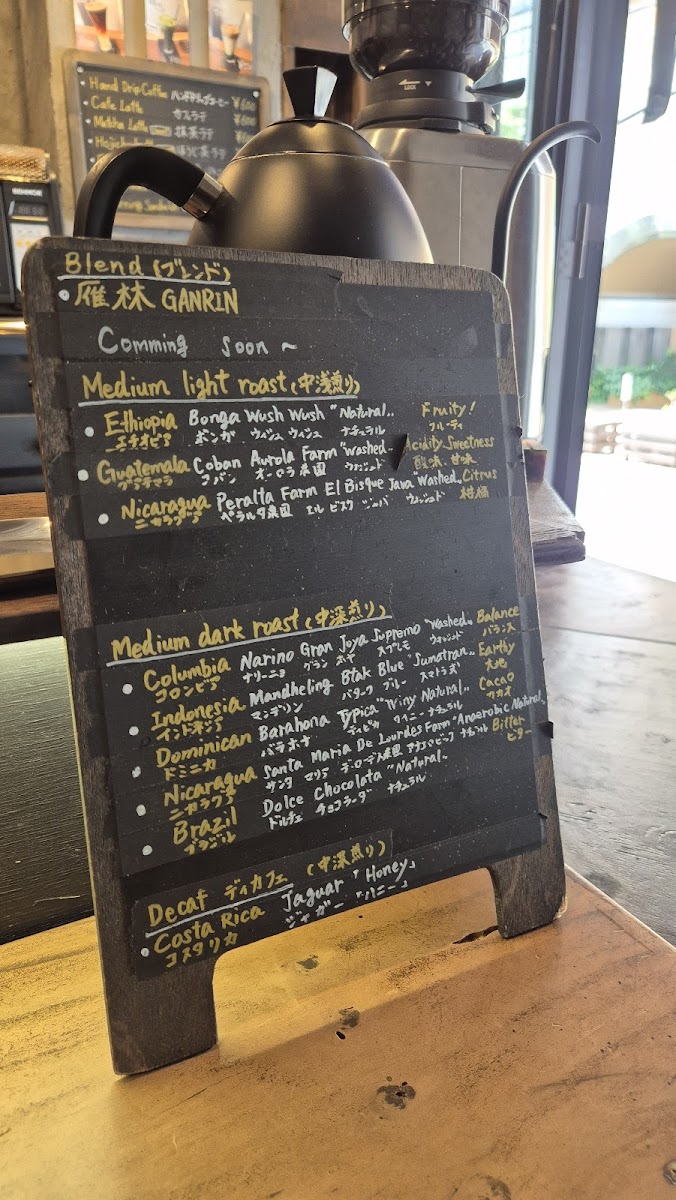 Hand Drip Coffee ハンドドリップコーヒー
Cafe Latte カフェラテ
Matcha Latte 抹茶ラテ
ほうじ茶ラテ
LOCK
Blend (ブレンド)
・雁林 GANRIN
Comming Soon ~
Medium light roast (中浅煎り)
・Ethiopia Bonga Wush Wush "Natural" Fruity!
エチオピア ボンガ ウィッシュ ウィッシュ ナチュラル フルーティ
・Guatemala Coban Aurola Farm "Washed" Acidity Sweetness
グアテマラ コバン オーロラ農園 ウォッシュド 酸味、甘味
・Nicaragua Peralta Farm El Bisque Java Washed" Citrus
ニカラグア ペラルタ農園 エル ビスク ジャバ ウォッシュド 柑橘
Medium dark roast (中深煎り)
・Columbia Narino Gran Joya Supremo "Washed" Balance
コロンビア ナリーニョ グラン ホヤ スプレモ ウォッシュド バランス
・Indonesia Mandheling Btak Blue "Sumatran" Earthy
インドネシア マンデリン バターク ブルー スマトラ式 大地
・Dominican Barahona Typica "Winy Natural" Cacao
ドミニカ バラオナ ティピカ ワイニー ナチュラル カカオ
・Nicaragua Santa Maria De Lourdes Farm "Anaerobic Natural"
ニカラグア サンタ マリア デ ロデス農園 アナエロビック ナチュラル
・Brazil Dolce Chocolata "Natural" Bitter
ブラジル ドルチェ チョコラータ ナチュラル ビター
Decaf ディカフェ (中深煎り)
・Costa Rica Jaguar「Honey」
コスタリカ ジャガー「ハニー」